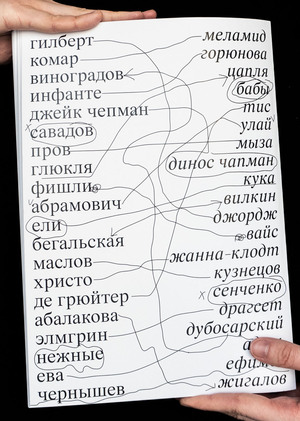 гилберт
комар
виноградов
инфанте
джейк чепман
савадов
пров
глюкля
фишли
абрамович
ели
бегальская
маслов
христо
де грюйтер
абалакова
элмгрин
нежные
ева
чернышев
меламид
горюнова
цапля
бабы
тис
улай
мыза
динос чапман
кука
вилкин
джордж
вайс
жанна-клодт
кузнецов
сенченко
драгсет
дубосарский
жигалов